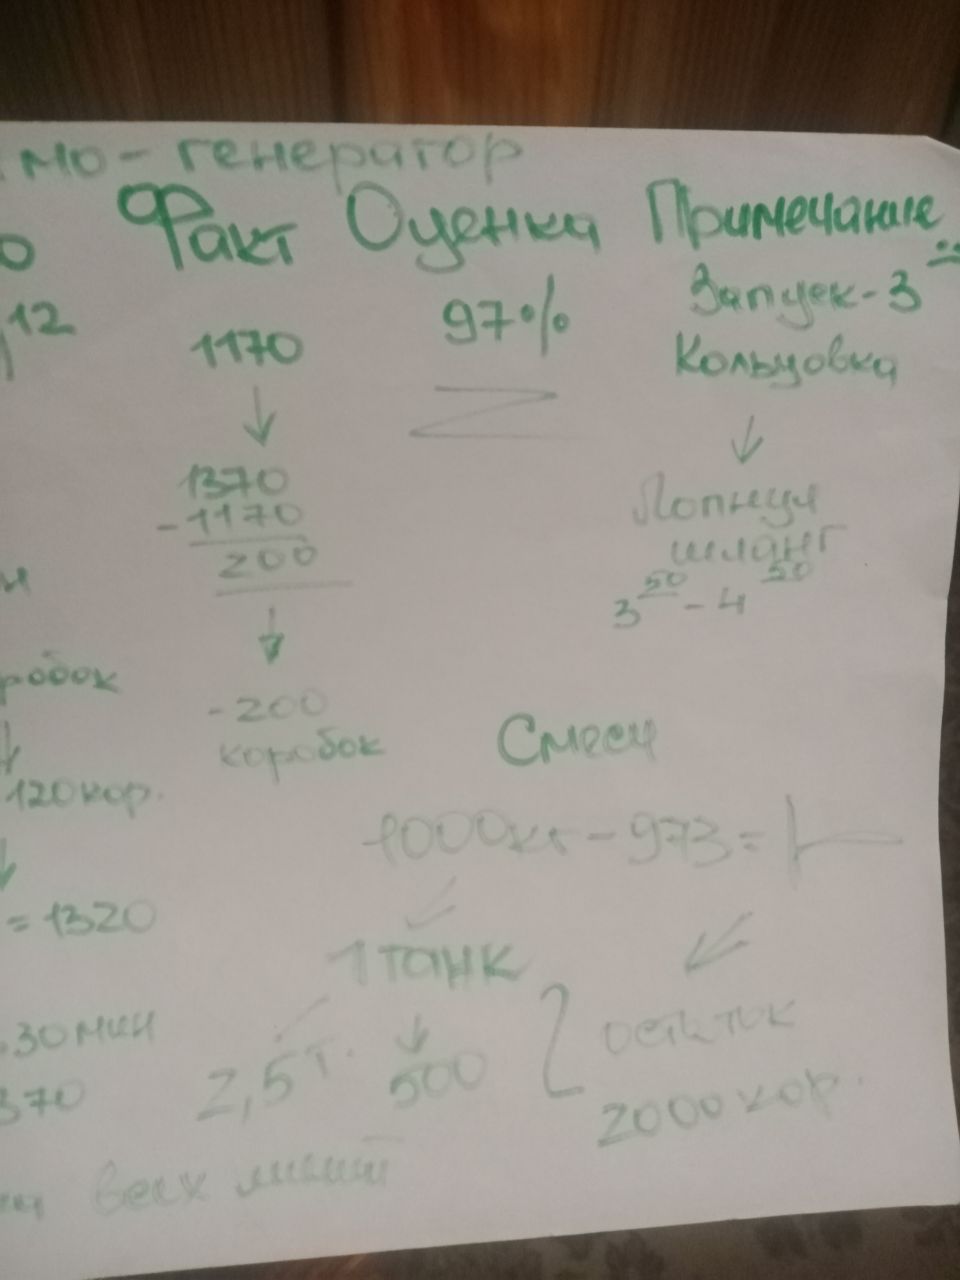 мо-генератор
о Факт Оценка Примечание
12 1170 97% Запуск-3
Кольцовка
1370
-1170
200
Лопнул
шланг
3 50 - 4 50
робок
-200
коробок
120 кор.
Смеси
1000кг - 973 =
= 1320
1 танк
30 мин
370
2,5 т. 500
остаток
2000 кор.
всех линий